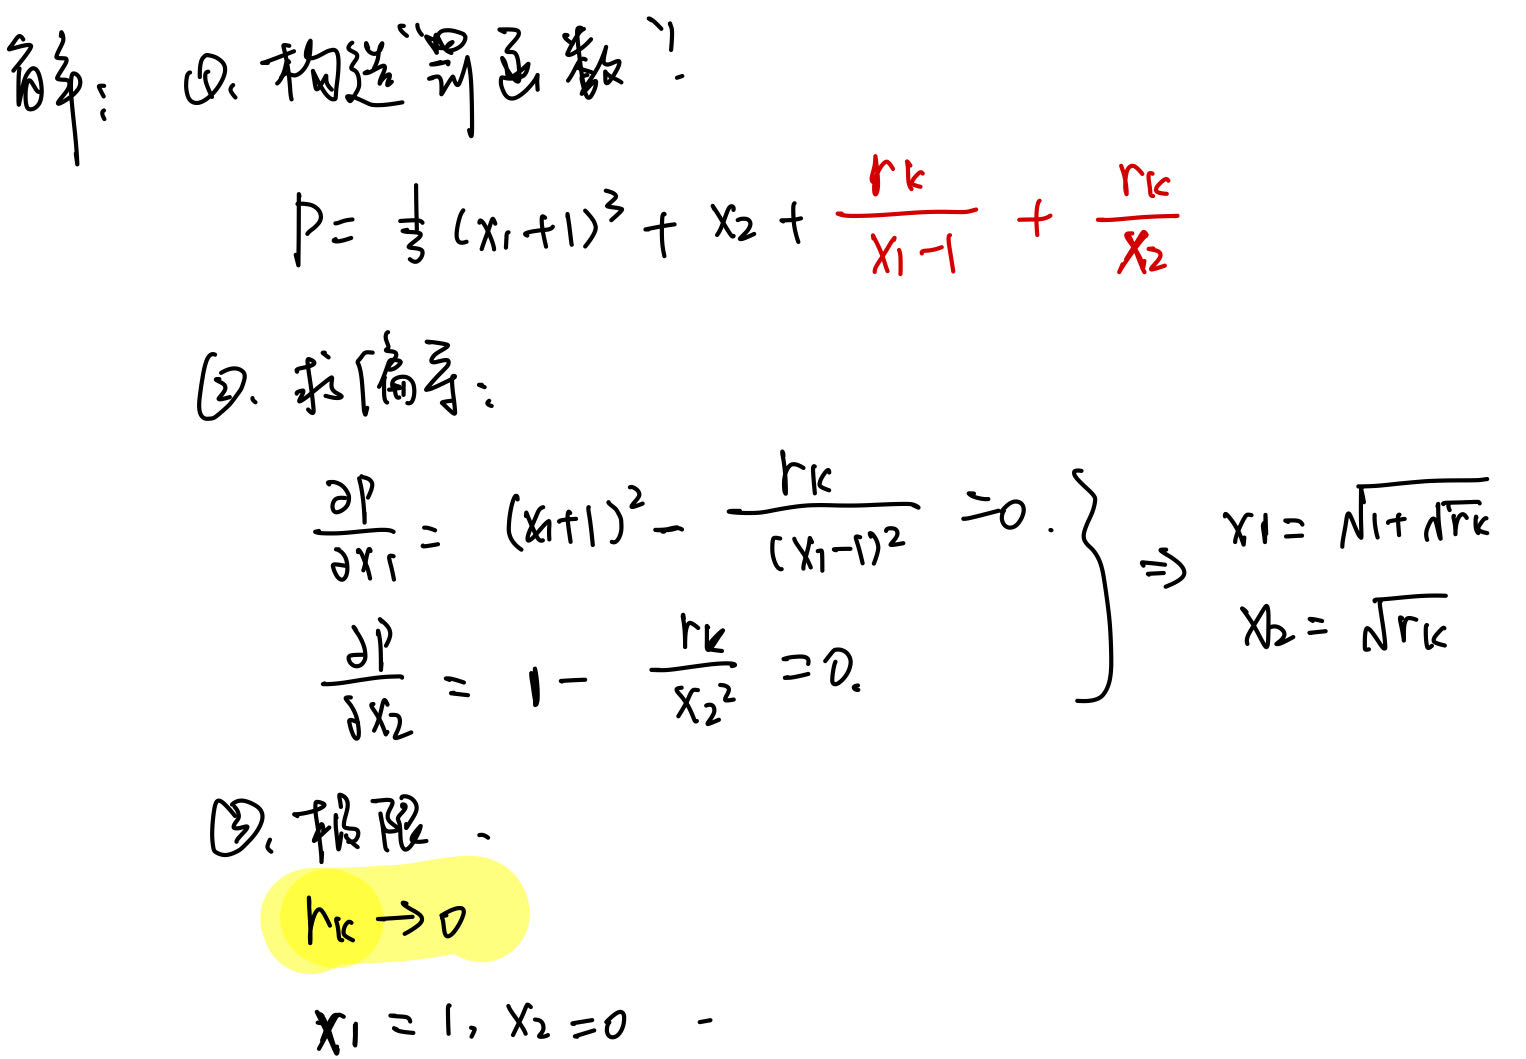 解: ①. 构造“罚函数”:
P = \frac{1}{3}(x₁+1)³ + x₂ + \frac{r_k}{x₁-1} + \frac{r_k}{x₂}
②. 求偏导:
\frac{∂P}{∂x₁} = (x₁+1)² - \frac{r_k}{(x₁-1)²} = 0.
\frac{∂P}{∂x₂} = 1 - \frac{r_k}{x₂²} = 0.
} ⇒ x₁ = \sqrt{1+\sqrt{r_k}}
x₂ = \sqrt{r_k}
③. 极限.
r_k → 0
x₁ = 1, x₂ = 0